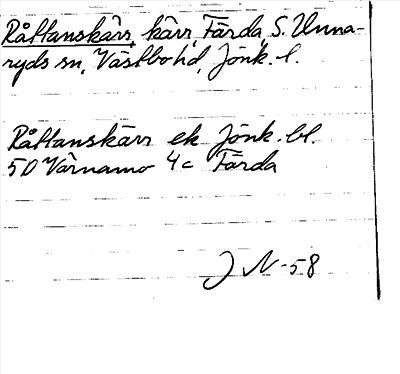 Råttanskärr, kärr, Färda, S. Unna-
ryds sn, Västbo hd, Jönk. l.
Råttanskärr ek Jönk. bl.
5D Värnamo 4c Färda
J N-58